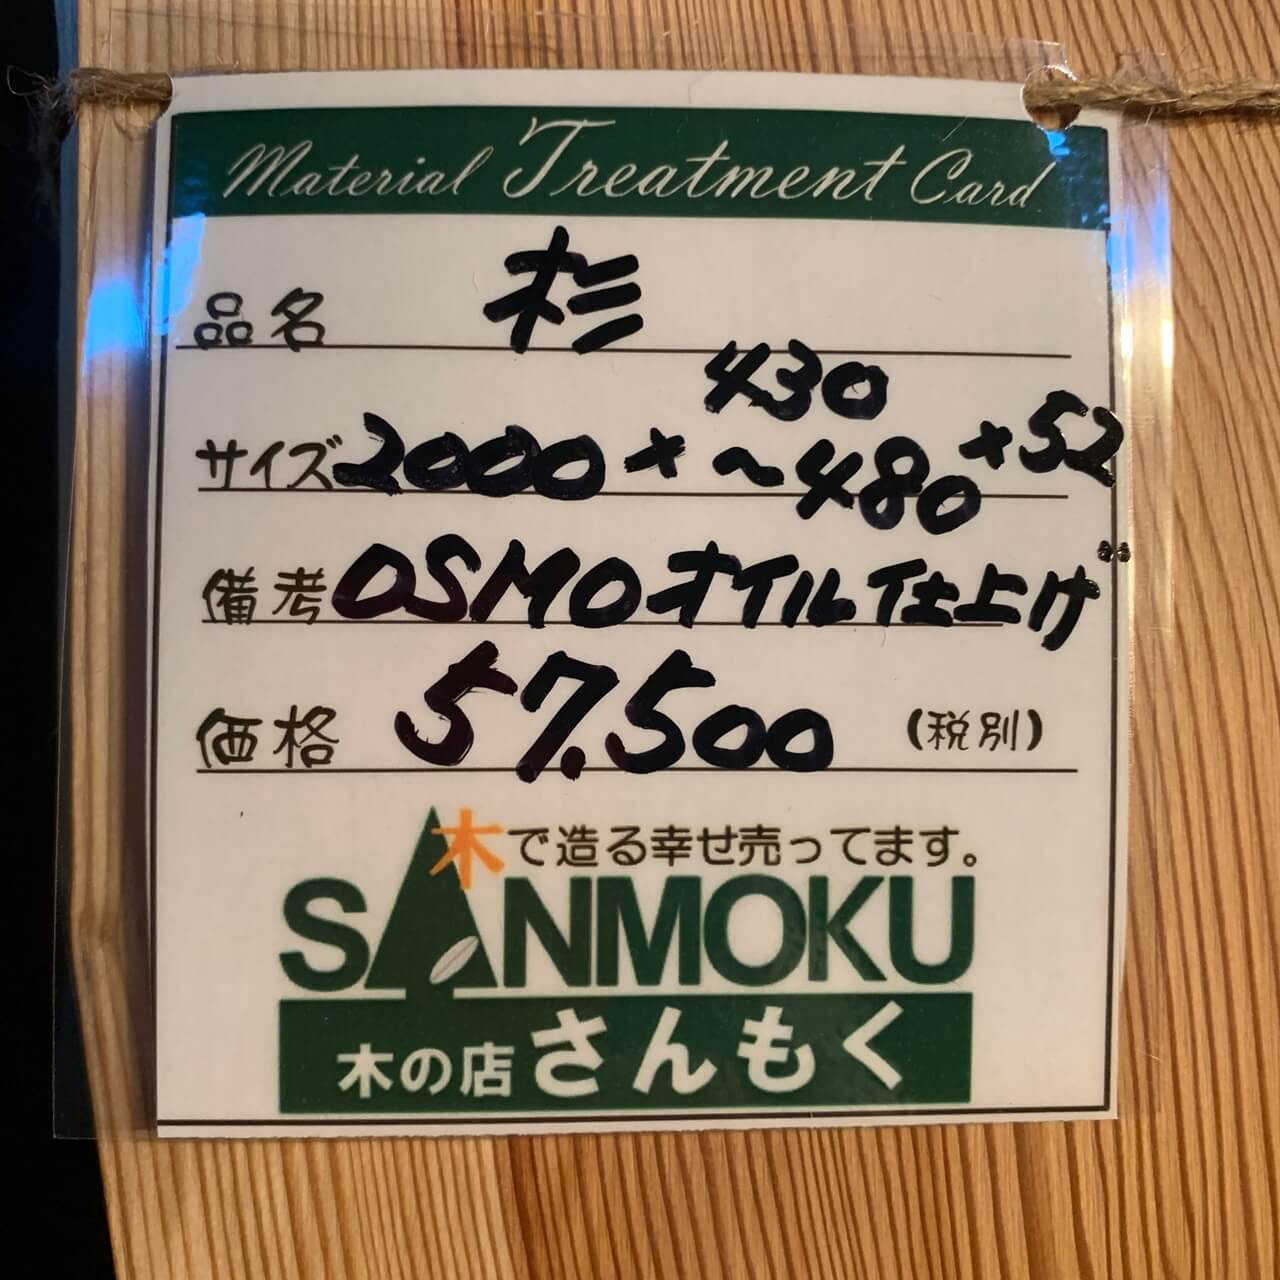 Material Treatment Card
品名 杉
サイズ 2000 × 430~480 × 52
備考 OSMOオイル仕上げ
価格 57.500 (税別)
木で造る幸せ売ってます。
SANMOKU
木の店 さんもく